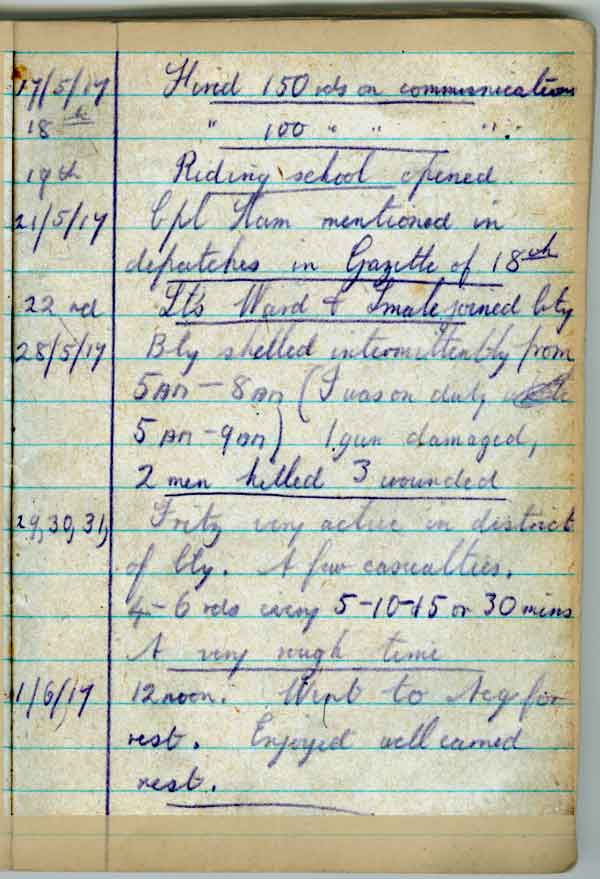 17/5/17 Fired 150 rds on communication
18th " 100 " " " "
19th Riding school opened.
21/5/17 Cpl Ham mentioned in
depatches in Gazette of 18th
22nd Lts Ward & Smale joined bty
28/5/17 Bty shelled intermittently from
5AM - 8AM (I was on duty
5AM - 9AM) 1 gun damaged,
2 men killed 3 wounded
29, 30, 31, Fritz very active in district
of bty. A few casualties.
4-6 rds every 5-10-15 or 30 mins
A very rough time
1/6/17 12 noon. Went to Acq for
rest. Enjoyed well earned
rest.